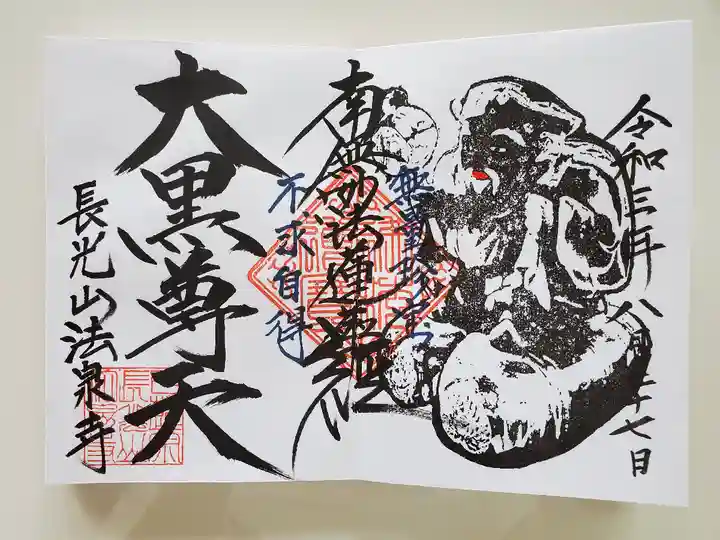 令和三年八月二十七日
無量珍宝
南無妙法蓮華経
不求自得
大黒尊天
長光山法泉寺